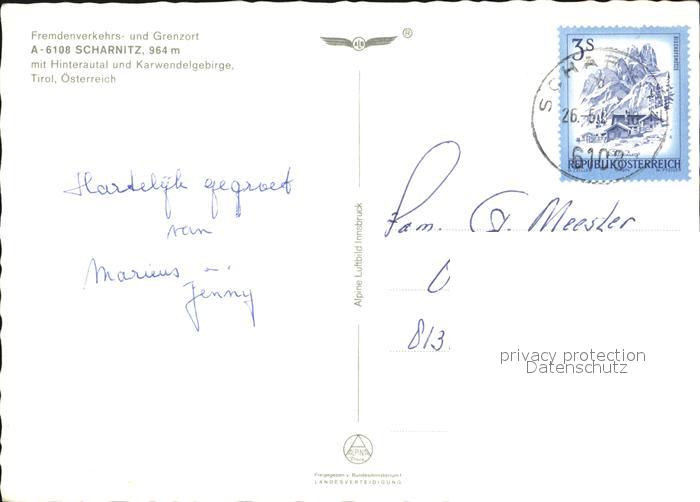 Fremdenverkehrs- und Grenzort
A-6108 SCHARNITZ, 964 m
mit Hinterautal und Karwendelgebirge,
Tirol, Österreich
Hartelijk gegroet
van
Marieus en
Jenny
Alpine Luftbild Innsbruck
ALPINA
Freigegeben v. Bundesministerium f.
LANDESVERTEIDIGUNG
®
3S
REPUBLIK ÖSTERREICH
SCHARNITZ
26.-5.
6108
Fam. G. Meester
813.
privacy protection
Datenschutz